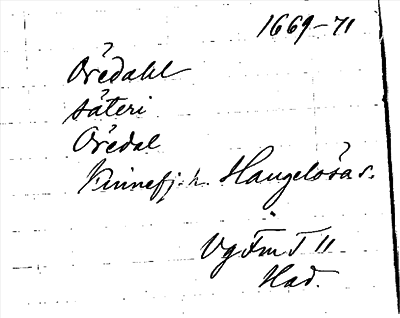 1669-71
Öredahl
säteri
Öredal
Kinnefj. h. Hangelösa s.
Vg Fm T 11
Had.